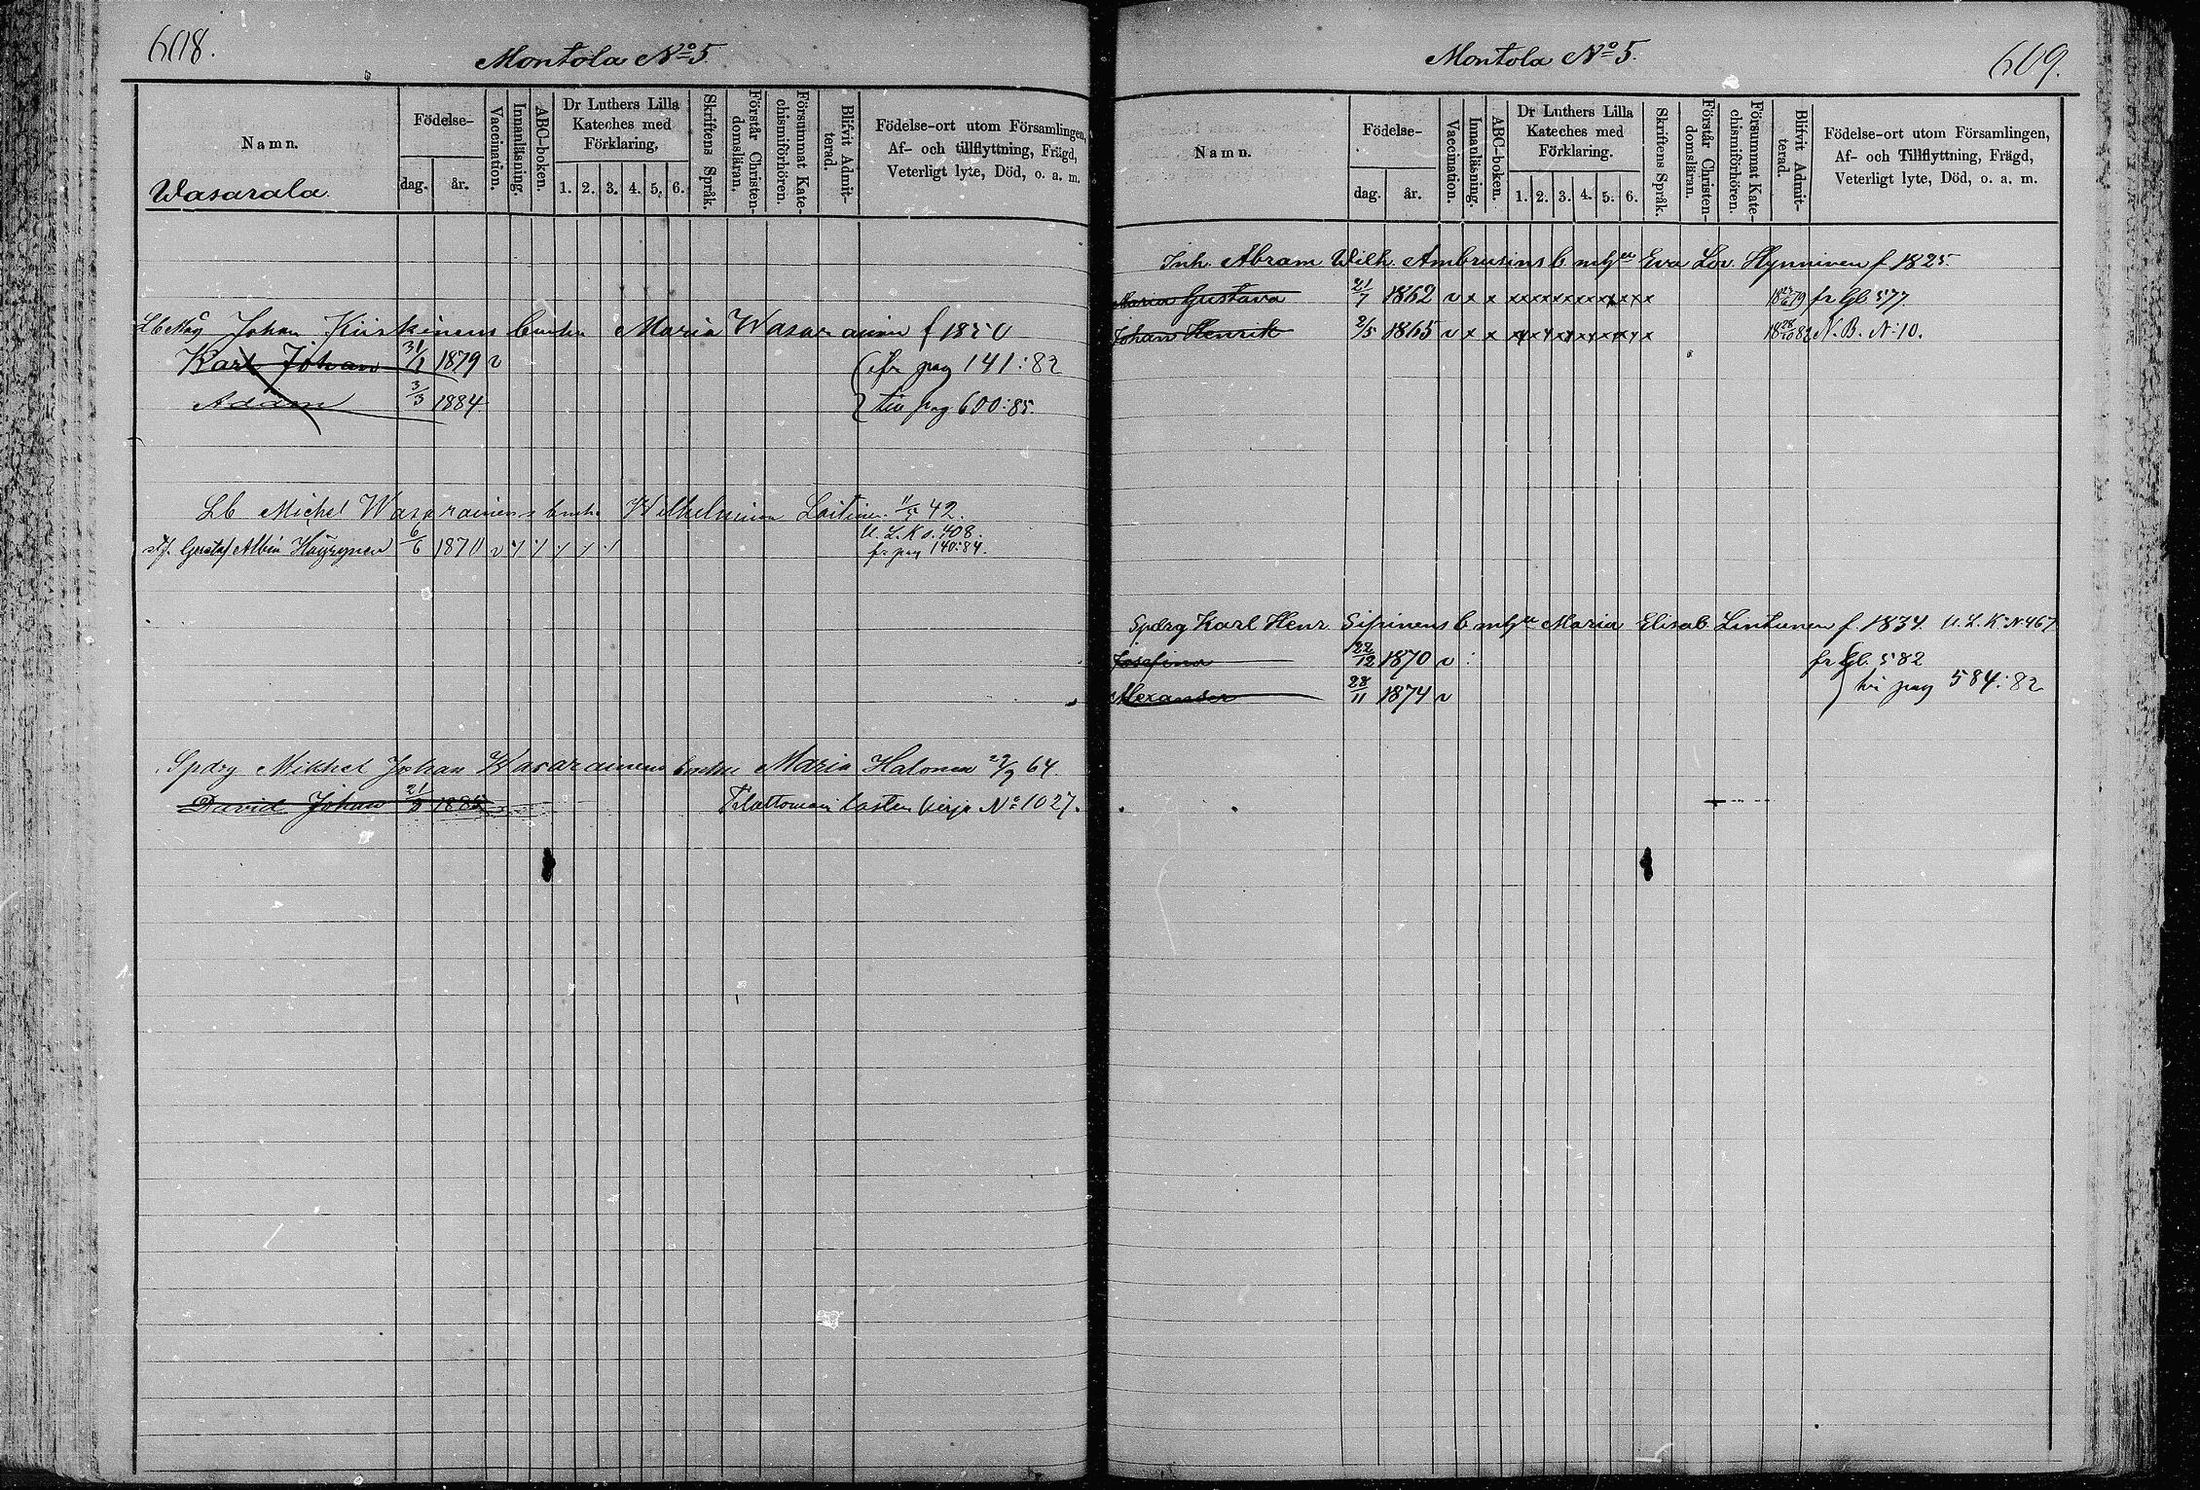 608.
Montola No 5
Namn.
Födelse-
dag.
år.
Vaccination.
Innanläsning.
ABC-boken.
Dr Luthers Lilla
Kateches med
Förklaring.
1. 2. 3. 4. 5. 6.
Skriftens Språk.
Förstår Christen-
domsläran.
Försummat Kate-
chismiförhören.
Blifvit Admit-
terad.
Födelse-ort utom Församlingen,
Af- och tillflyttning, Frägd,
Veterligt lyte, Död, o. a. m.
Wasarala.
Johan Kiiskinens Maria Wasarainen f 1850
Karl Johan 31/1 1879 v fr pag 141:82
Adam 3/3 1884 till pag 600:85.
Lb Michel Wasarainens Wilhelmina Laitinen 42.
Gustaf Albin Häyrynen 6/6 1870 v U. L. K. o. 408.
fr pag 140:84.
Spdrg Mikkel Johan Wasarainens Maria Halonen 64.
David Johan 1885 lasten kirja No 1027.
Montola No 5.
609.
Namn.
Födelse-
dag.
år.
Vaccination.
Innanläsning.
ABC-boken.
Dr Luthers Lilla
Kateches med
Förklaring.
1. 2. 3. 4. 5. 6.
Skriftens Språk.
Förstår Christen-
domsläran.
Försummat Kate-
chismiförhören.
Blifvit Admit-
terad.
Födelse-ort utom Församlingen,
Af- och Tillflyttning, Frägd,
Veterligt lyte, Död, o. a. m.
Inh. Abram Wilh. Ambrusins b. m hu Eva Lov. Hynninen f 1825.
Maria Gustava 21/7 1862 v x x xxxxxxxxxxxx fr Gb. 577
Johan Henrik 2/5 1865 v x x xxxxxxxxxxxx N. B. N:10.
Spdrg Karl Henr. Sipinens b Maria Elisab. Lintunen f. 1834. U. L. K. N 467
Josefina 22/12 1870 v fr Gb. 582
Alexander 28/11 1874 v till pag 584:82